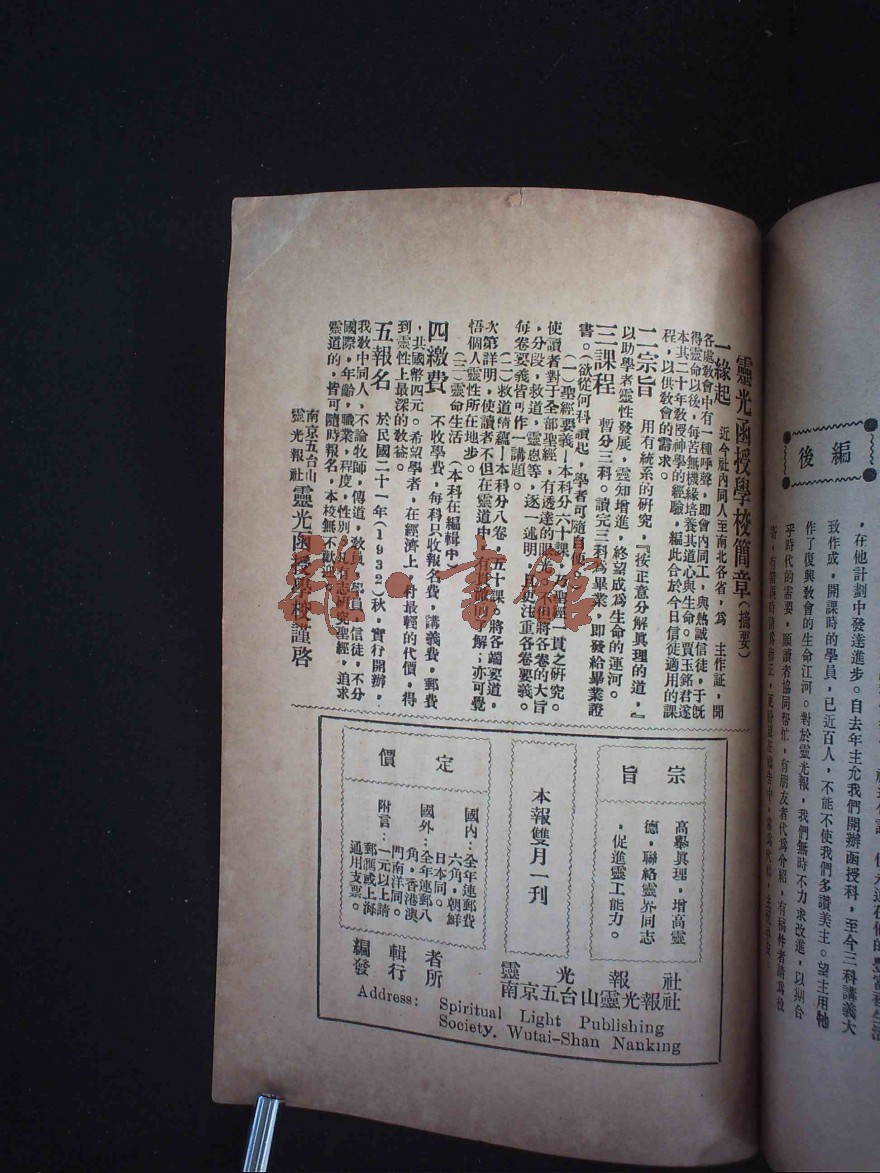 編後
，在他計劃中發達進步。自去年主允我們開辦函授科，至今三科講義大
致作成，開課時的學員，已近百人，不能不使我們多讚美主。望主用牠
作了復興教會的生命江河。對於靈光報，我們無時不力求改進，以期合
乎時代的需要，願讀者協同帮忙，有朋友者代為介紹，有稿件者請為投
靈光函授學校簡章（摘要）
一緣起　近今社內同人至南北各省，爲　主作証，聞
各處敎會中有一種呼聲，即會內同工，與熱誠信徒，于旣
得靈命以後，每苦無機緣培養其道心與生命。賈玉銘君遂
本其二十年敎授神學的經驗，編此合於今日信徒適用的課
程，以供敎會的需求。
二宗旨　用有統系的研究，『按正意分解眞理的道，』
以助學者靈性發展，靈知增進，終望成爲生命的運河。
三課程　暫分三科。讀完三科爲畢業，即發給畢業證
書。（欲從何科讀起，學者可隨自便）
（一）聖經要義—本科分六十課，乃聖經一貫之研究。
使讀者對于全部聖經，有透達的眼光，不但將各卷的大旨
，分段，救道，靈恩等，逐一述明，且更注重各卷要義。
每卷要義皆可作一講題。
（二）救道精蘊—本科分八卷，五十課。將各端要道，
次第詳明，使讀者不但在靈道中，有貫徹的了解；亦可覺
悟個人靈性所在地步。
（三）靈命生活　（本科在編輯中）
四繳費　不收學費，每科只收報名費，講義費，郵費
，共國幣四元。希望學者，在經濟上，付最輕的代價，得
到靈性上最深的敎益。
五報名　於民國二十一年（1932）秋，實行開辦，
我敎中同人，不論牧師，傳道，敎員，學員，信徒，不分
國際，年齡，職業，程度，性別，凡有志研究聖經，追求
靈道的，皆可隨時報名，本校無不歡迎。
南京五台山
靈光報社靈光函授學校謹啓
宗旨
高舉眞理，增高靈
德，聯絡靈界同志
，促進靈工能力。
本報雙月一刊
定價
國內：全年連郵費
六角，朝鮮
日本同。
國外：全年連郵八
角，香港澳
門南洋同。
附言：一元以上請
郵滙或上海
通用支票。
編輯者　靈光報社
發行所　南京五台山靈光報社
Address: Spiritual Light Publishing
Society. Wutai-Shan Nanking
龍·書館